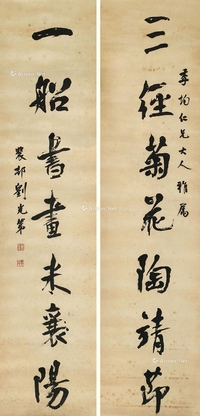 季均仁兄大人雅属
三径菊花陶靖節
一船書畫米襄陽
裴邨劉光第